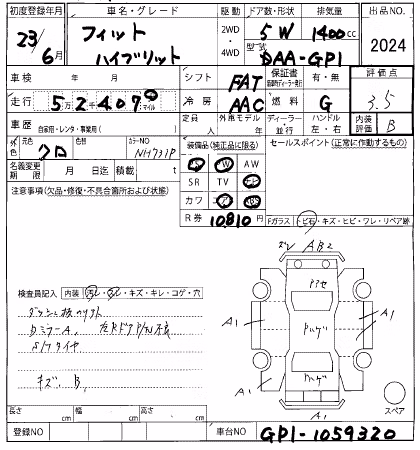 初度登録年月 車名・グレード 駆動 ドア数・形状 排気量 出品NO.
23/6月 フィット ハイブリット 2WD・4WD 5W 1400cc 2024
型式 DAA-GP1
車検 年 月 シフト FAT 保証書 有・無 評価点
走行 5万2千407 マイル 冷房 AAC 燃料 G 3.5
車歴 自家用・レンタ・事業用( ) 定員 人 外用モデル ディーラー・並行 ハンドル 左・右 内装評価 B
外色 元色 クロ 色替 カラーNO NH731P 装備品(純正品に限る) セールスポイント(正常に作動するもの)
PS PW AW
名義変更期限 月 日迄 積載 t SR TV ナビ
注意事項(欠品・修復・不具合箇所および状態) カワ エアB ABS
R券 10810円 Fガラス(ヒ石・キズ・ヒビ・ワレ・リペア跡)
AB2
アアセ
検査員記入 内装(汚レ・スレ・キズ・キレ・コゲ・穴)
A1 A1
ハゲ
DミラーA、 左RドアP/W不良
S/Tタイヤ
ハゲ
キズ、B、
A A
スペア
A1
長さ cm 幅 cm 高さ cm
登録NO 車台NO GP1-1059320